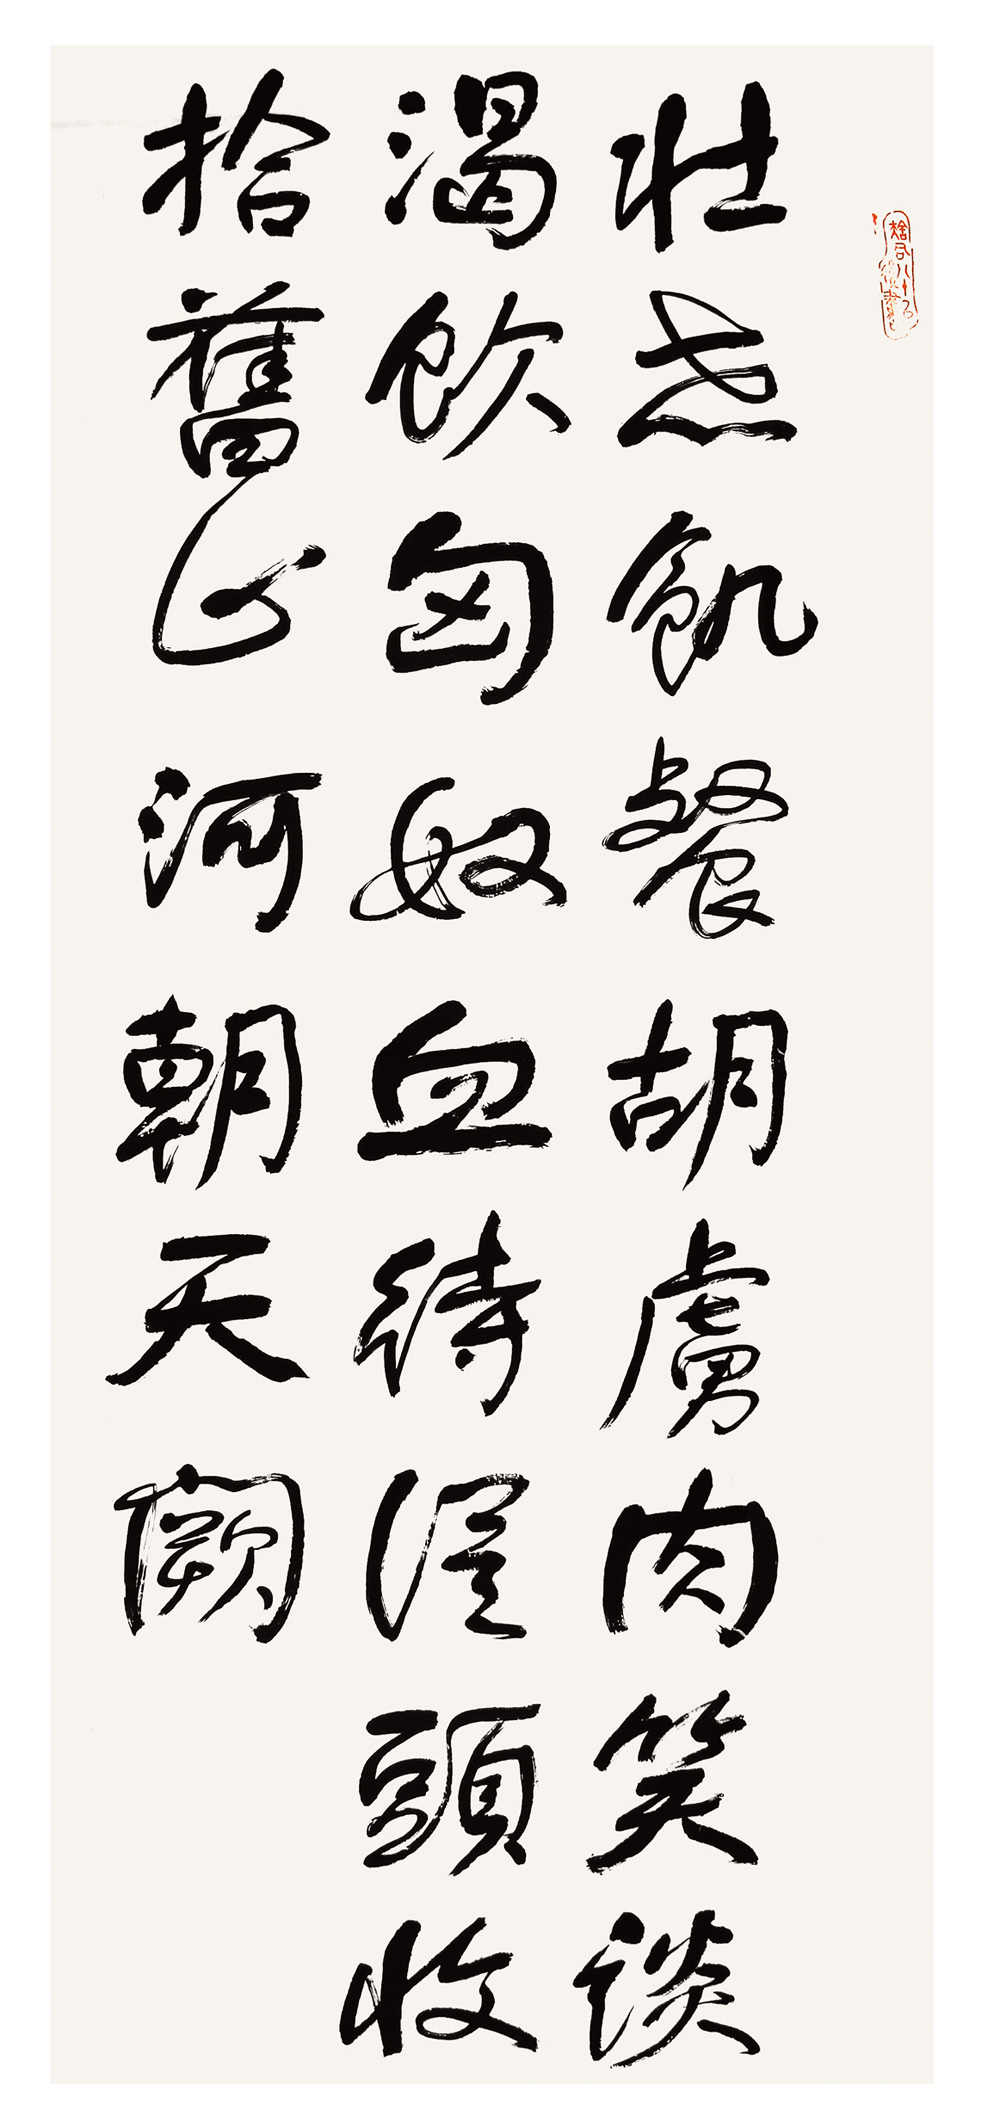 壯志飢餐胡虜肉笑談
渴飲匈奴血待從頭收
拾舊山河朝天闕